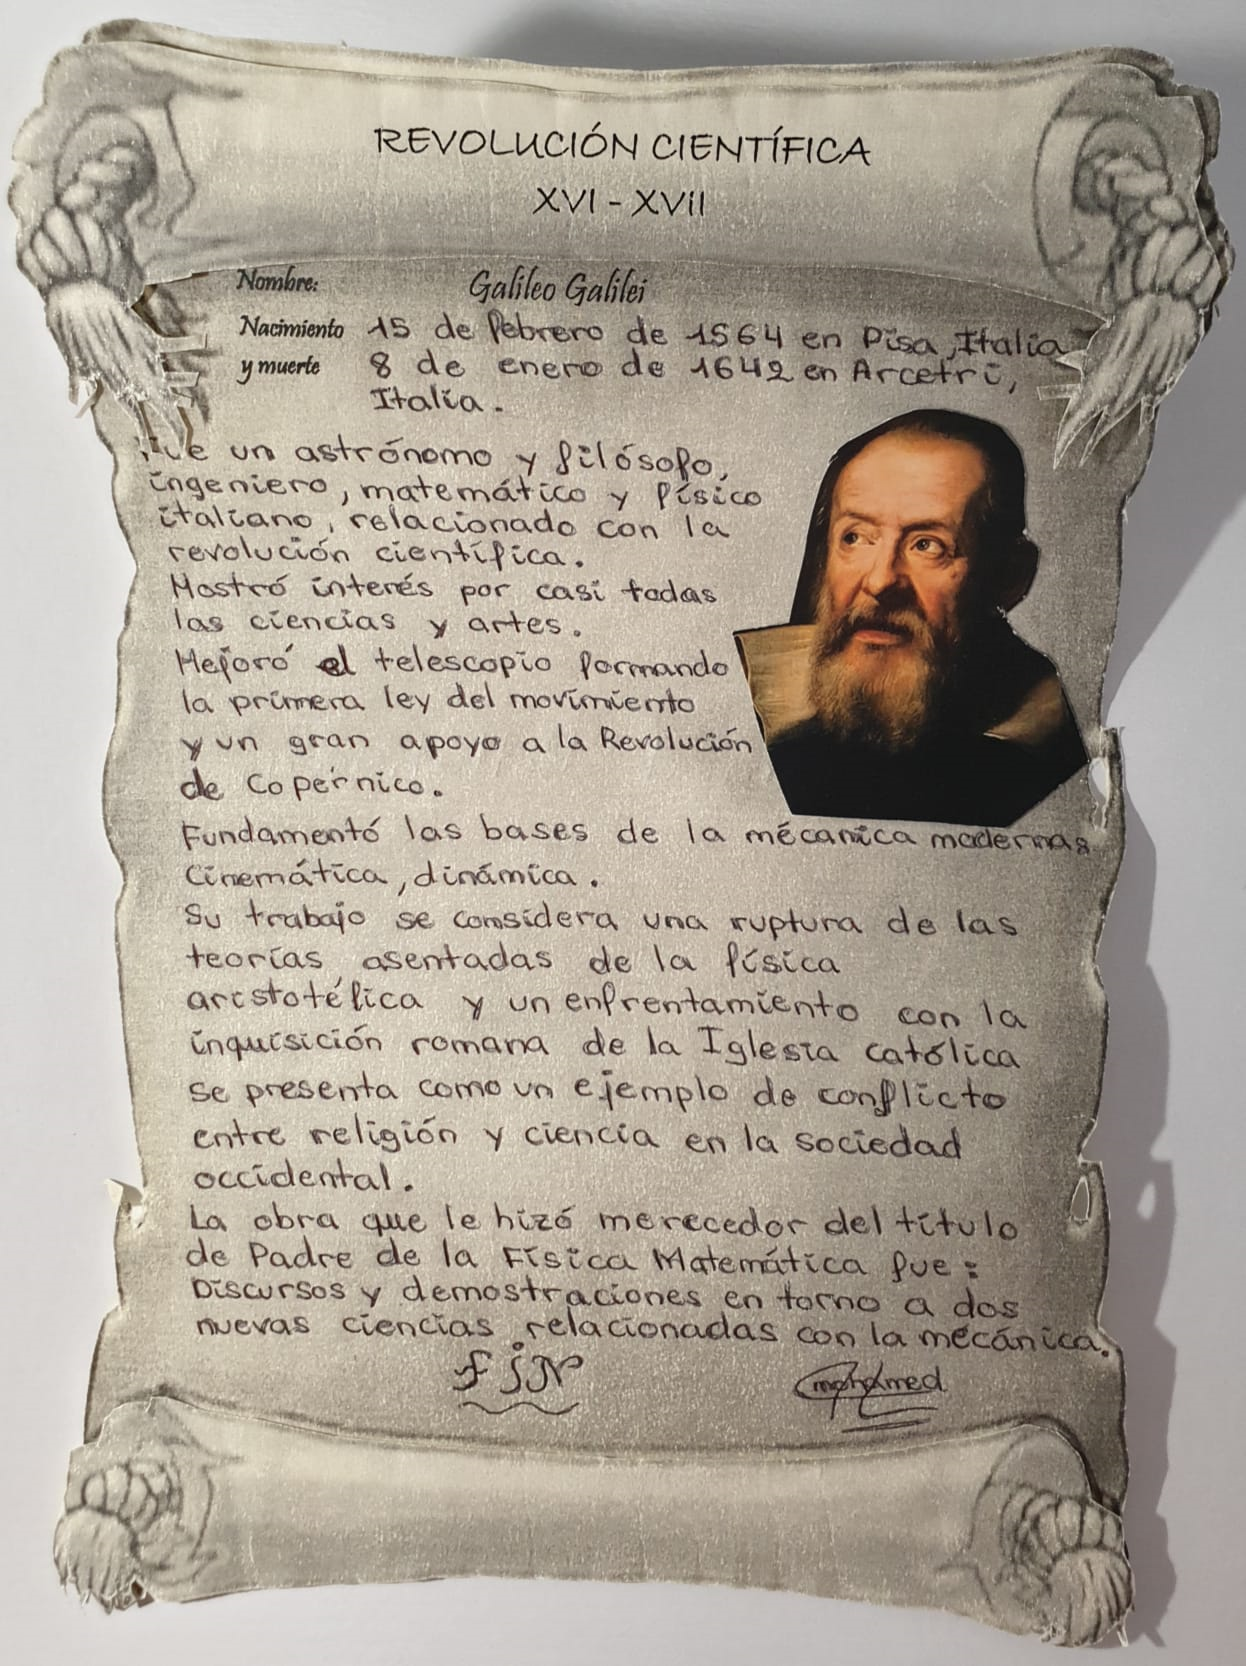 REVOLUCIÓN CIENTÍFICA
XVI - XVII
Nombre: Galileo Galilei
Nacimiento 15 de febrero de 1564 en Pisa, Italia
y muerte 8 de enero de 1642 en Arcetri,
Italia.
Fue un astrónomo y filósofo,
ingeniero, matemático y físico
italiano, relacionado con la
revolución científica.
Mostró interés por casi todas
las ciencias y artes.
Mejoró el telescopio formando
la primera ley del movimiento
y un gran apoyo a la Revolución
de Copérnico.
Fundamentó las bases de la mécanica modernas
Cinemática, dinámica.
Su trabajo se considera una ruptura de las
teorías asentadas de la física
aristotélica y un enfrentamiento con la
inquisición romana de la Iglesia católica
se presenta como un ejemplo de conflicto
entre religión y ciencia en la sociedad
occidental.
La obra que le hizó merecedor del título
de Padre de la Física Matemática fue:
Discursos y demostraciones en torno a dos
nuevas ciencias relacionadas con la mécánica.
FiN mohamed